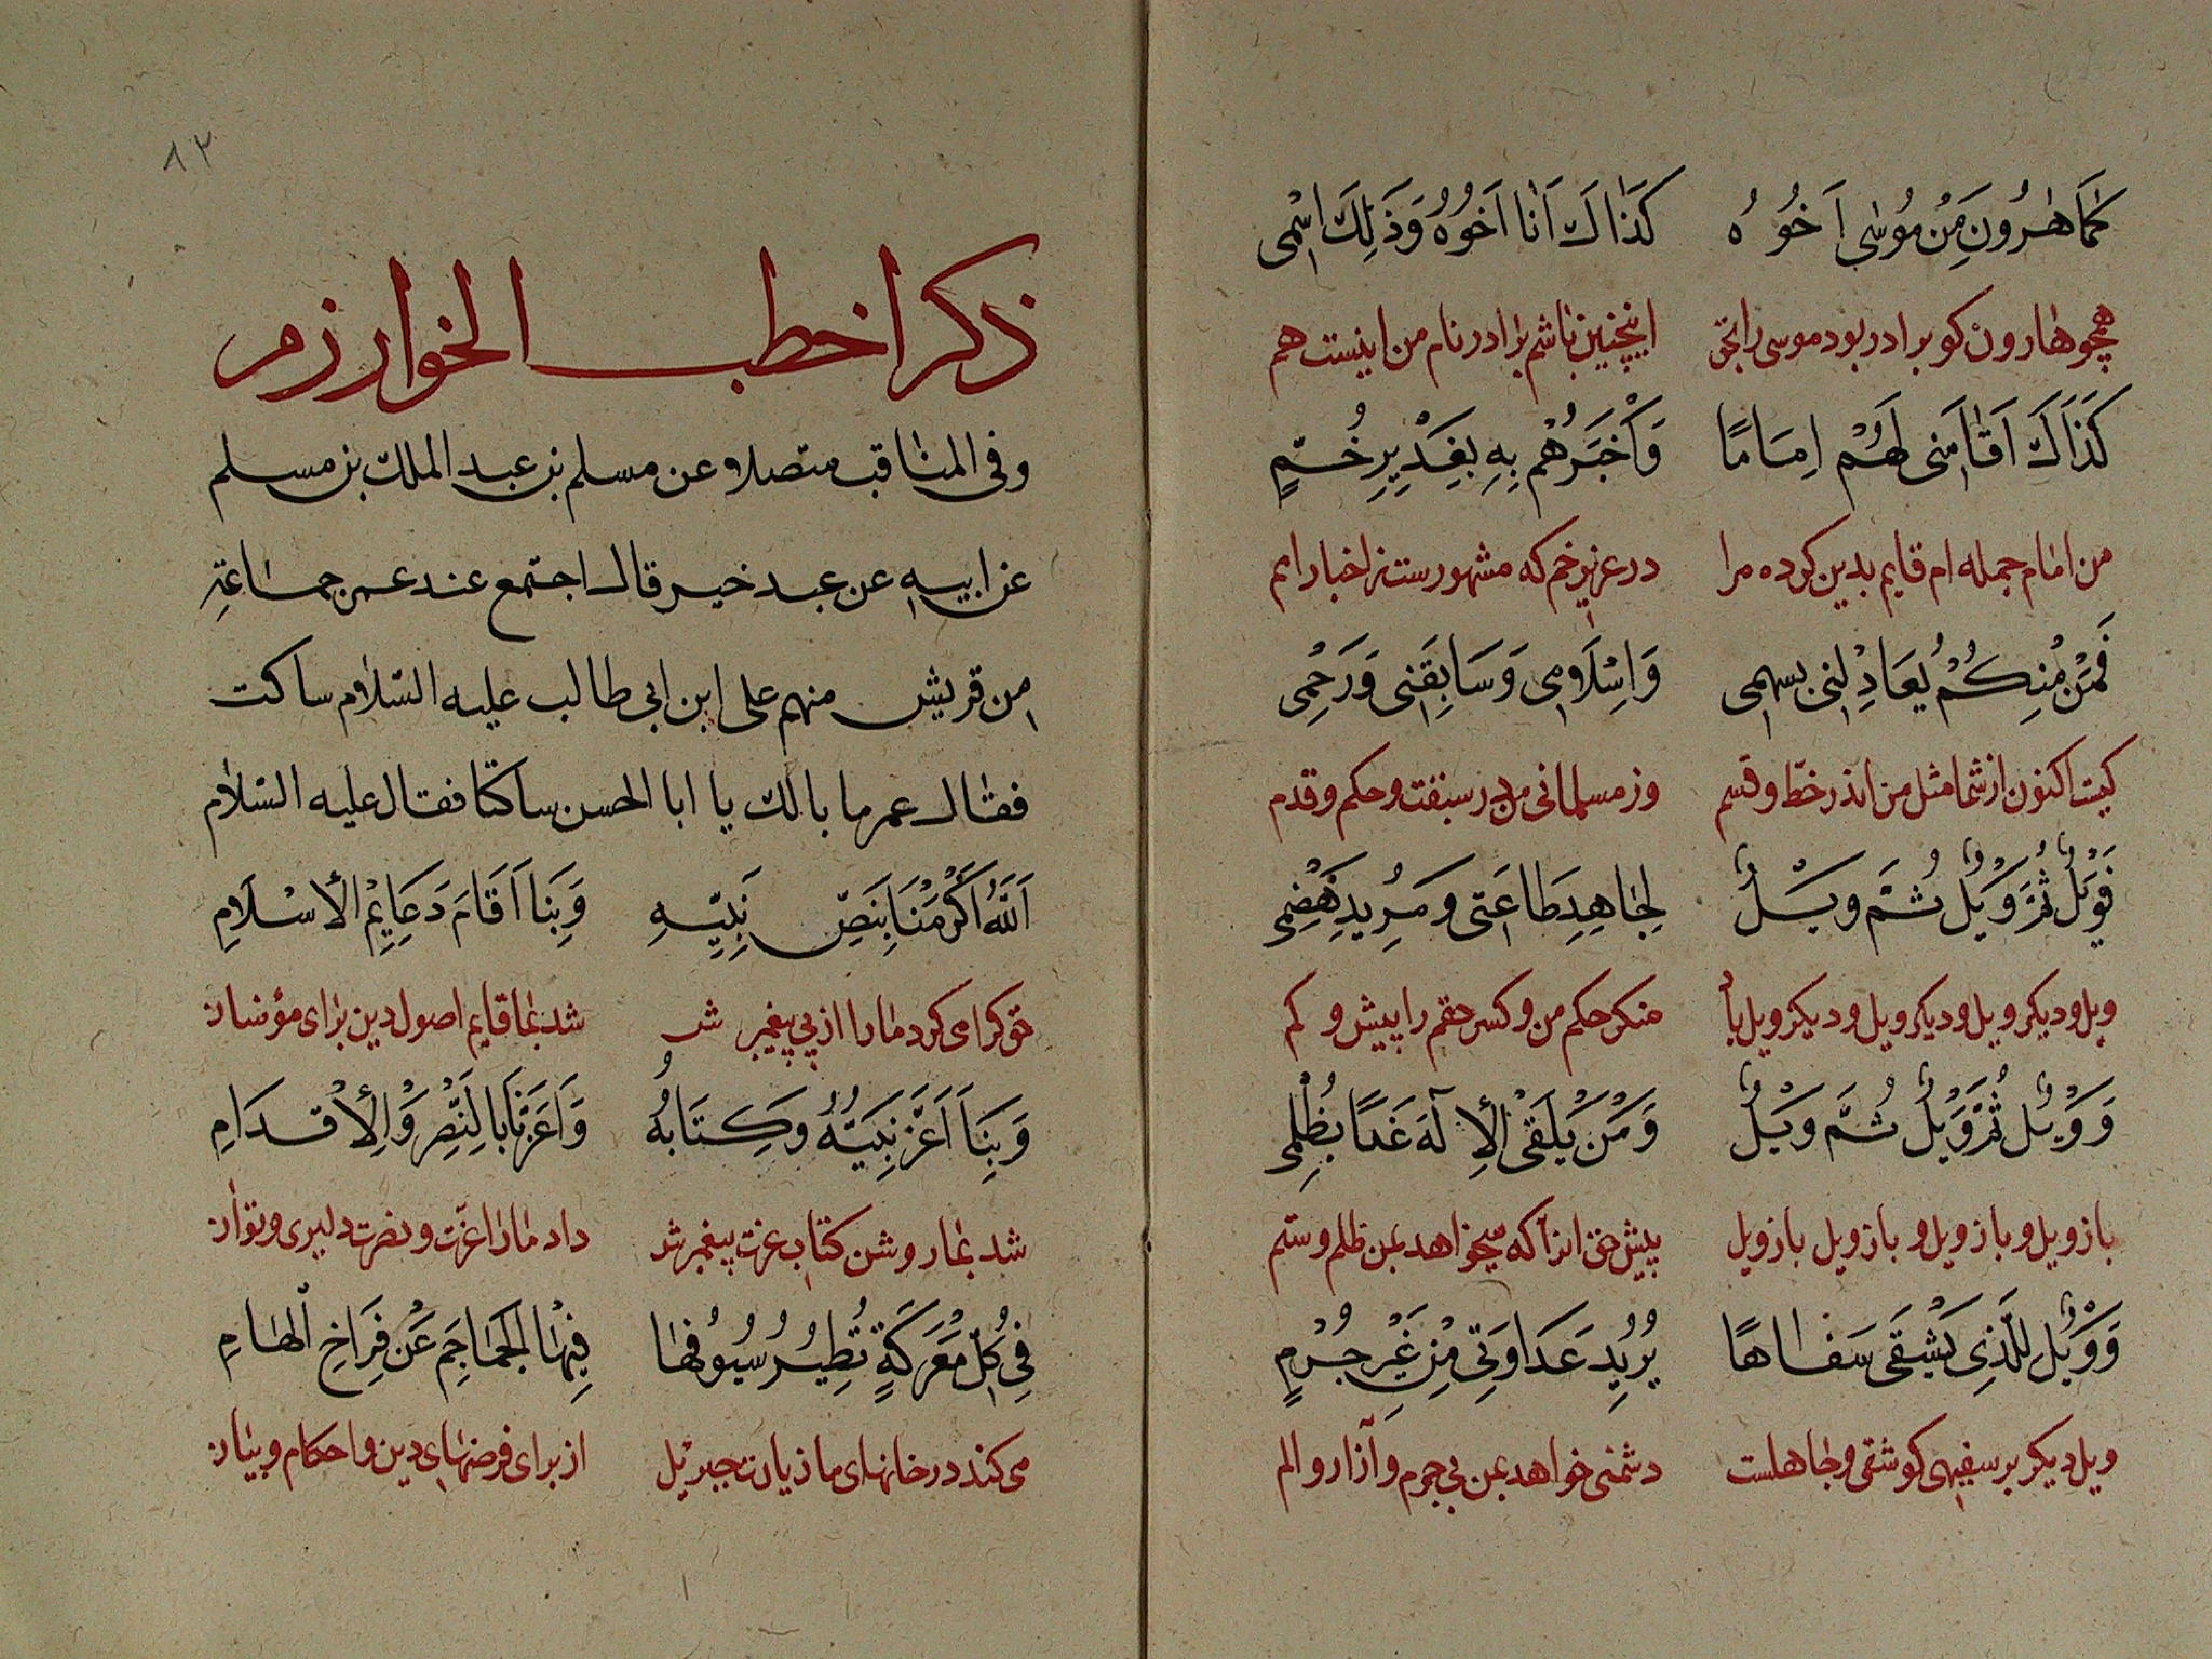 كَمَا هٰرُونَ مِنْ مُوسٰى اَخُوُه كَذَاكَ اَنَا اَخُوُهُ وَذٰلِكَ اسْمِى
همچو هارون كو برادر بود موسى را بحق اينچنين باشم برادر نام من اينست هم
كَذَاكَ اَقَامَنِى لَهُمْ اِمَامًا وَاَخْبَرَهُمْ بِهِ بِغَدِيرِ خُمٍّ
من امام جمله ام قايم بدين كرده مرا در عزيز خم كه مشهورست ز اخبار امم
فَمَنْ مُنِكُمْ يُعَادِلُنِى بِسَهْمِى وَاِسْلَامِى وَسَابِقَتِى وَرَحْمِى
كيست اكنون از شما مثل من اندر خط و قسم وز مسلمانى من در سبقت و حكم و قدم
فَوَيْلٌ ثُمَّ وَيْلٌ ثُمَّ وَيْلٌ لِجَاهِدِ طَاعَتِى وَمَرِيدِ هَضْمِى
ويل و ديكر ويل و ديكر ويل و ديكر ويل باد منكر حكم من و كسر حقم را پيش و كم
وَوَيْلٌ ثُمَّ وَيْلٌ ثُمَّ وَيْلٌ وَمَنْ يَلْقَى الْإِلٰهَ غَدًا بِظُلْمِى
باز ويل و باز ويل و باز ويل باز ويل پيش حق انرا كه ميخواهد بمن ظلم و ستم
وَوَيْلٌ لِلَّذِى يَشْقَى سَفَاهًا يُرِيدُ عَدَاوَتِى مِنْ غَيْرِ جُرْمٍ
ويل ديكر بر سفيهى كو شقى و جاهلست دشمنى خواهد بمن بى جرم و آزار و الم
٨٢
ذكر اخطب الخوارزم
وفى المناقب متصلا عن مسلم بن عبد الملك بن مسلم
عن ابيه عن عبد خير قال اجتمع عند عمر جماعة
من قريش منهم على ابن ابى طالب عليه السّلام ساكت
فقال عمر ما بالك يا ابا الحسن ساكتا فقال عليه السّلام
اَللّٰهُ اَكْرَمَنَا بِنَصِّ نَبِيِّهِ وَبِنَا اَقَامَ دَعَايِمَ الْاِسْلَامِ
حق كرامى كرد ما را از پى پيغمبرش شد بما قايم اصول دين براى مؤمنان
وَبِنَا اَعَزَّ نَبِيَّهُ وَكِتَابَهُ وَاَعَزَّنَا بِالنَّصْرِ وَالْاِقْدَامِ
شد بما روشن كتاب عزت پيغمبرش داد ما را عزّت و نصرت دليرى و توان
فِى كُلِّ مَعْرَكَةٍ تُطِيرُ سُيُوفُهَا فِيهَا الْجَمَاجِمَ عَنْ فِرَاخِ الْهَامِ
مى كند در خانهاى ما زيارت جبرئيل از براى فرضهاى دين و احكام و بيان